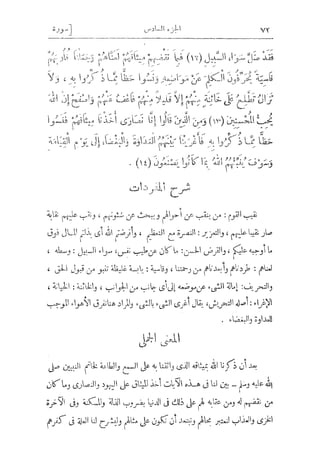 ٧٢ الجزء السادس [سورة
فَقَدْ ضَلَّ سَوَاءَ السَّبِيلِ (١٢) فَبِمَا نَقْضِهِمْ مِيثَاقَهُمْ لَعَنَّاهُمْ وَجَعَلْنَا قُلُوبَهُمْ
قَاسِيَةً يُحَرِّفُونَ الْكَلِمَ عَنْ مَوَاضِعِهِ وَنَسُوا حَظًّا مِمَّا ذُكِّرُوا بِهِ ، وَلَا
تَزَالُ تَطَّلِعُ عَلَى خَائِنَةٍ مِنْهُمْ إِلَّا قَلِيلًا مِنْهُمْ فَاعْفُ عَنْهُمْ وَاصْفَحْ إِنَّ اللهَ
يُحِبُّ الْمُحْسِنِينَ (١٣) وَمِنَ الَّذِينَ قَالُوا إِنَّا نَصَارَى أَخَذْنَا مِيثَاقَهُمْ فَنَسُوا
حَظًّا مِمَّا ذُكِّرُوا بِهِ فَأَغْرَيْنَا بَيْنَهُمُ الْعَدَاوَةَ وَالْبَغْضَاءَ إِلَى يَوْمِ الْقِيَامَةِ
وَسَوْفَ يُنَبِّئُهُمُ اللهُ بِمَا كَانُوا يَصْنَعُونَ (١٤) .
شرح المفردات
نقيب القوم : من ينقب عن أحوالهم ويبحث عن شئونهم ، ونقب عليهم نقابة
صار نقيبا عليهم ، والتعزير : النصرة مع التعظيم ، وأقرضتم الله أى بذلتم المال فوق
ما أوجبه عليكم ، والقرض الحسن : ما كان عن طيب نفس ، سواء السبيل : وسطه ،
لعناهم : طردناهم وأبعدناهم من رحمتنا ، وقاسية : يابسة غليظة تنبو من قبول الحق ،
والتحريف : إمالة الشىء عن موضعه إلى أى جانب من الجوانب ، والخائنة : الخيانة ،
الإغراء : أصله التحريش ، يقال أغرى الشىء بالشىء والمراد هنا تفرق الأهواء الموجب
للعداوة والبغضاء .
المعنى الجملى
بعد أن ذكرنا الله بميثاقه الذى واثقنا به على السمع والطاعة لخاتم النبيين صلى
الله عليه وسلم – بين لنا فى هذه الآيات أخذ الميثاق على اليهود والنصارى وما كان
من نقضهم له ومن عقابه لهم على ذلك فى الدنيا بضروب الذلة والمسكنة وفى الآخرة
بالخزى والعذاب لنعتبر بحالهم ونبتعد أن نكون على مثالهم وليشرح لنا العلة فى كفرهم